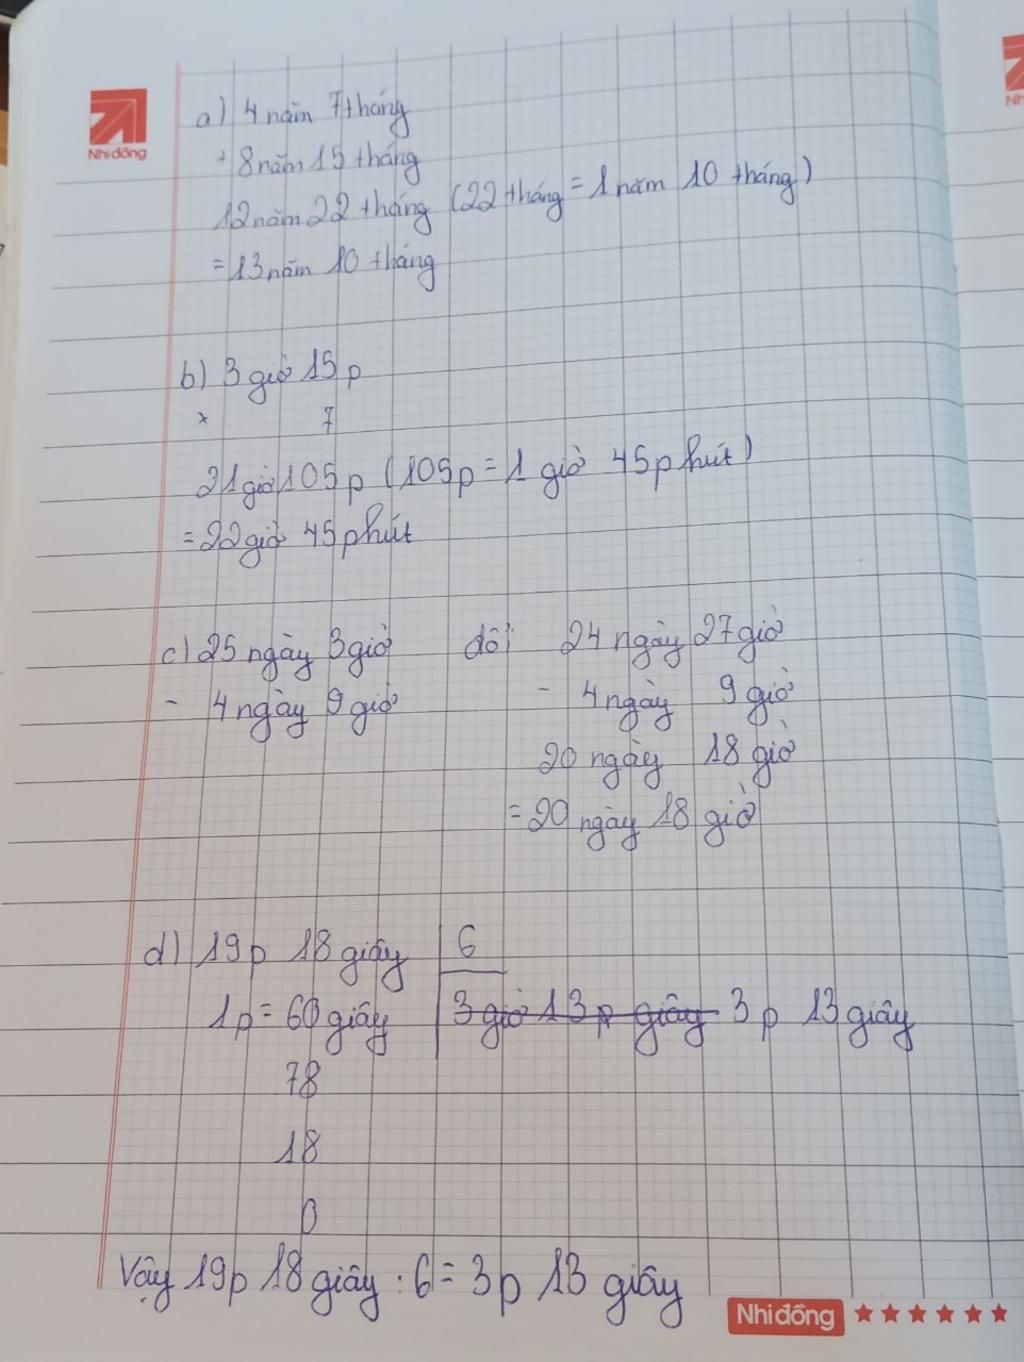 Nhi đồng
a) 4 năm 7 tháng
+ 8 năm 15 tháng
12 năm 22 tháng (22 tháng = 1 năm 10 tháng)
= 13 năm 10 tháng
b) 3 giờ 15 p
x 7
21 giờ 105 p (105p = 1 giờ 45 phút)
= 22 giờ 45 phút
c) 25 ngày 3 giờ đổi 24 ngày 27 giờ
- 4 ngày 9 giờ - 4 ngày 9 giờ
20 ngày 18 giờ
= 20 ngày 18 giờ
d) 19p 18 giây 6
1p = 60 giây 3 giờ 13 p giây 3 p 13 giây
78
18
0
Vậy 19p 18 giây : 6 = 3p 13 giây
Nhi đồng